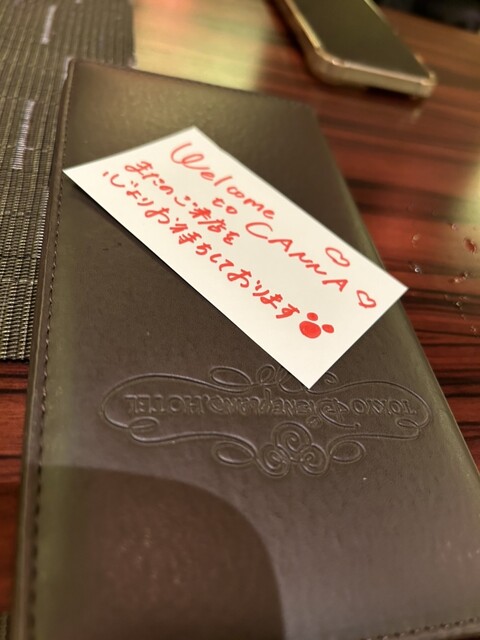 Welcome
to CANNA
またのご来店を
心よりお待ちしております
TOKYO DISNEYLAND HOTEL